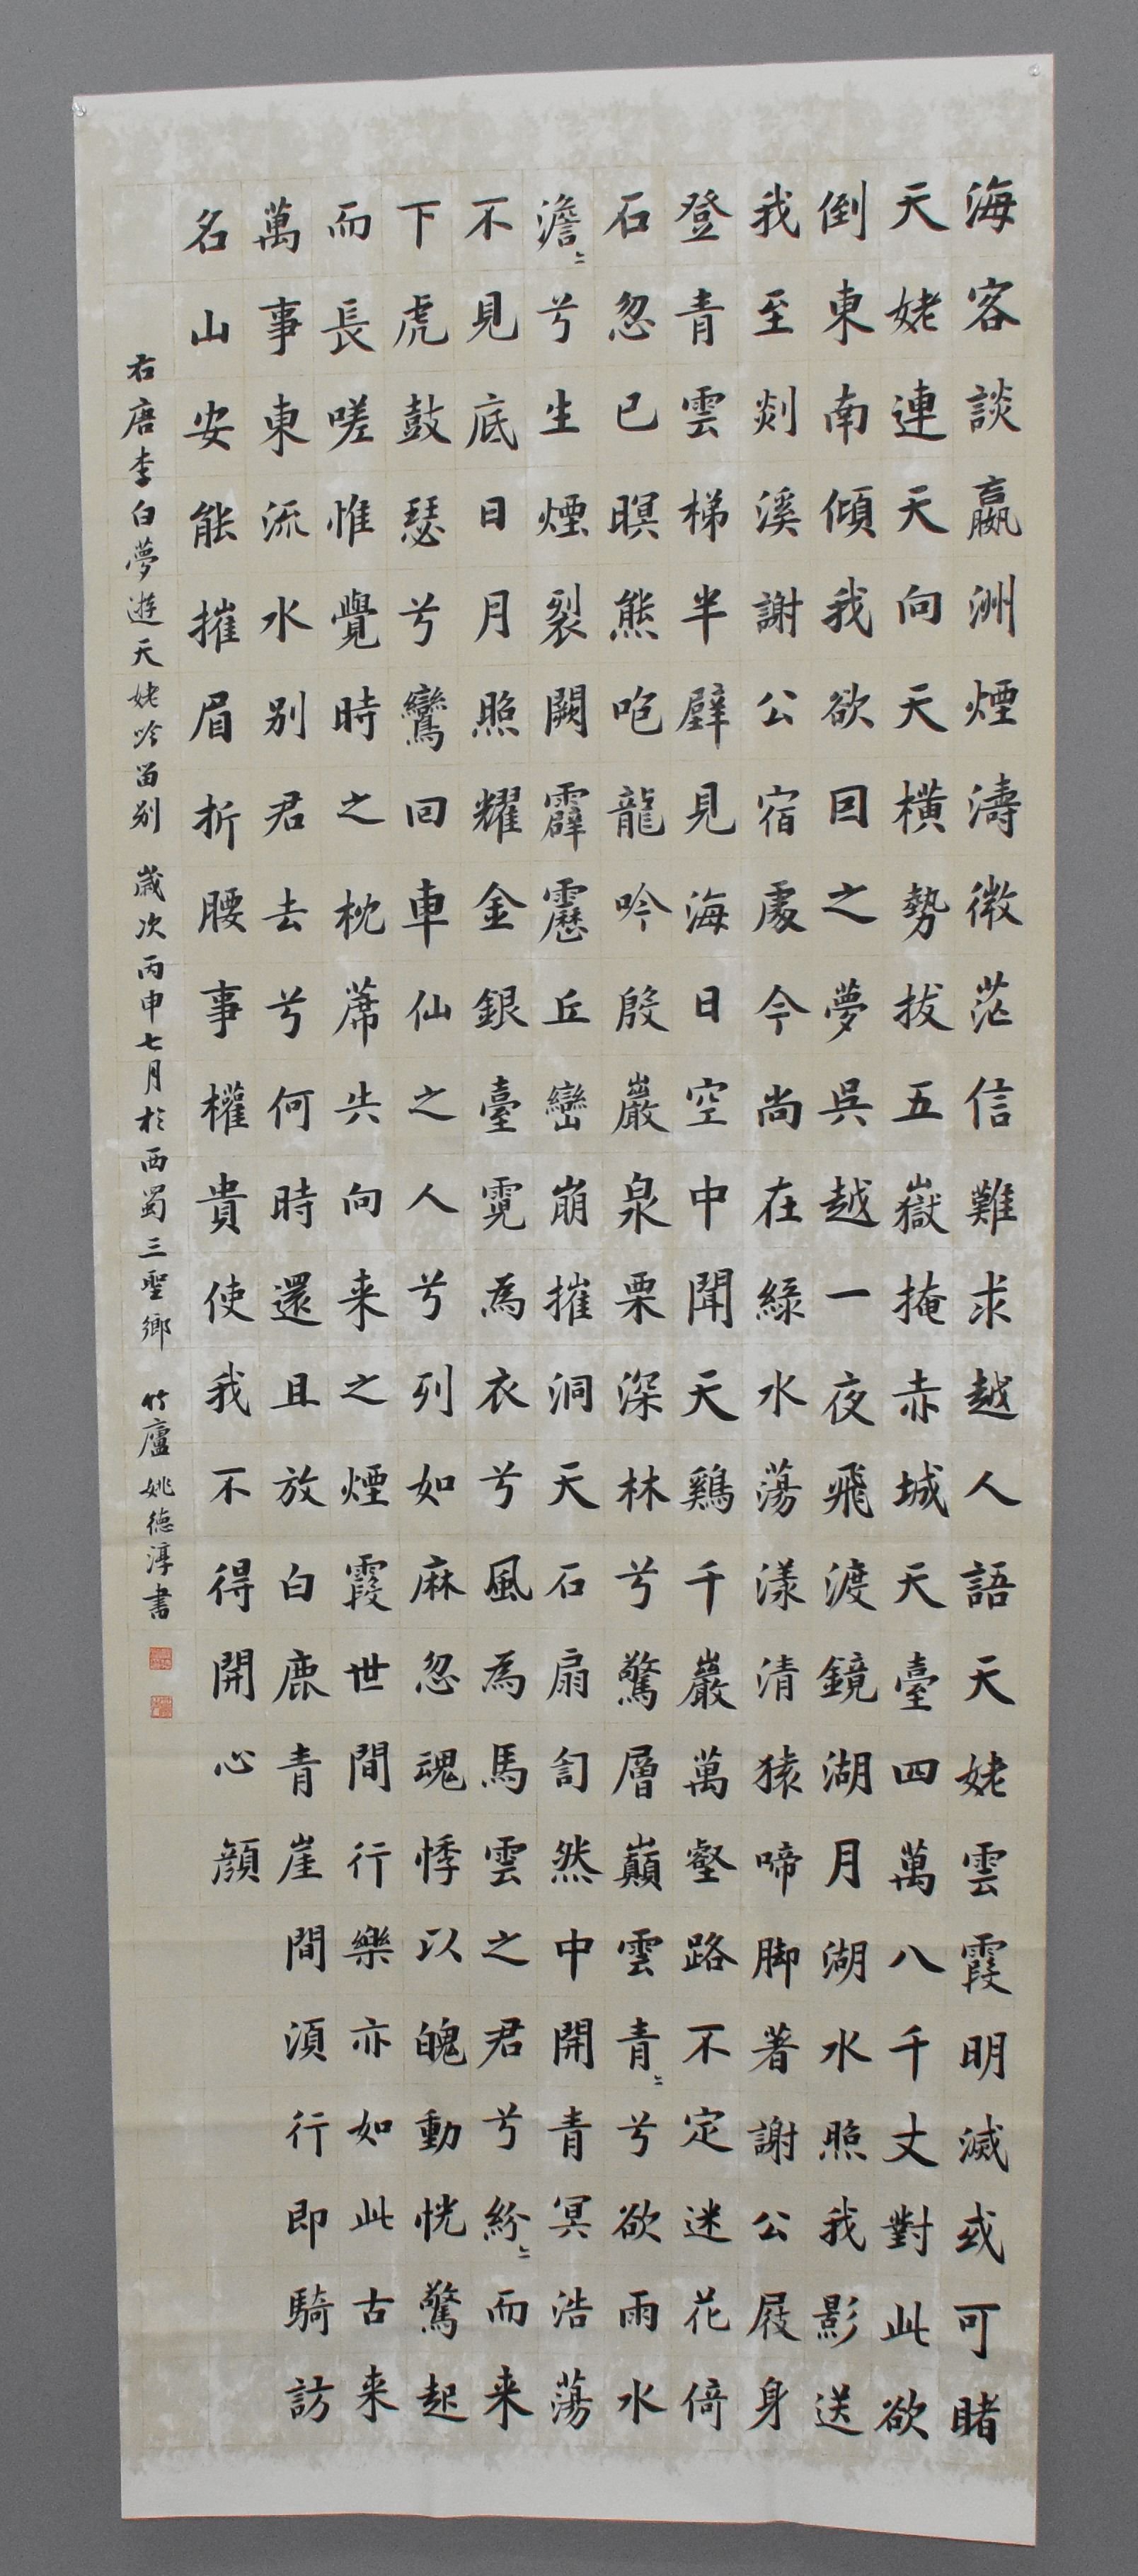 海客談瀛洲煙濤微茫信難求越人語天姥雲霞明滅或可睹
天姥連天向天橫勢拔五嶽掩赤城天臺四萬八千丈對此欲
倒東南傾我欲因之夢吳越一夜飛渡鏡湖月湖水照我影送
我至剡溪謝公宿處今尚在綠水蕩漾清猿啼脚著謝公屐身
登青雲梯半壁見海日空中聞天鷄千巖萬壑路不定迷花倚
石忽已暝熊咆龍吟殷巖泉栗深林兮驚層巔雲青〻兮欲雨水
澹〻兮生煙裂闕霹靂丘巒崩摧洞天石扇訇然中開青冥浩蕩
不見底日月照耀金銀臺霓為衣兮風為馬雲之君兮紛〻而来
下虎鼓瑟兮鸞回車仙之人兮列如麻忽魂悸以魄動恍驚起
而長嗟惟覺時之枕蓆失向来之煙霞世間行樂亦如此古来
萬事東流水別君去兮何時還且放白鹿青崖間須行即騎訪
名山安能摧眉折腰事權貴使我不得開心顏
右唐李白夢遊天姥吟留别 歲次丙申七月於西蜀三聖鄉 竹廬姚德淳書